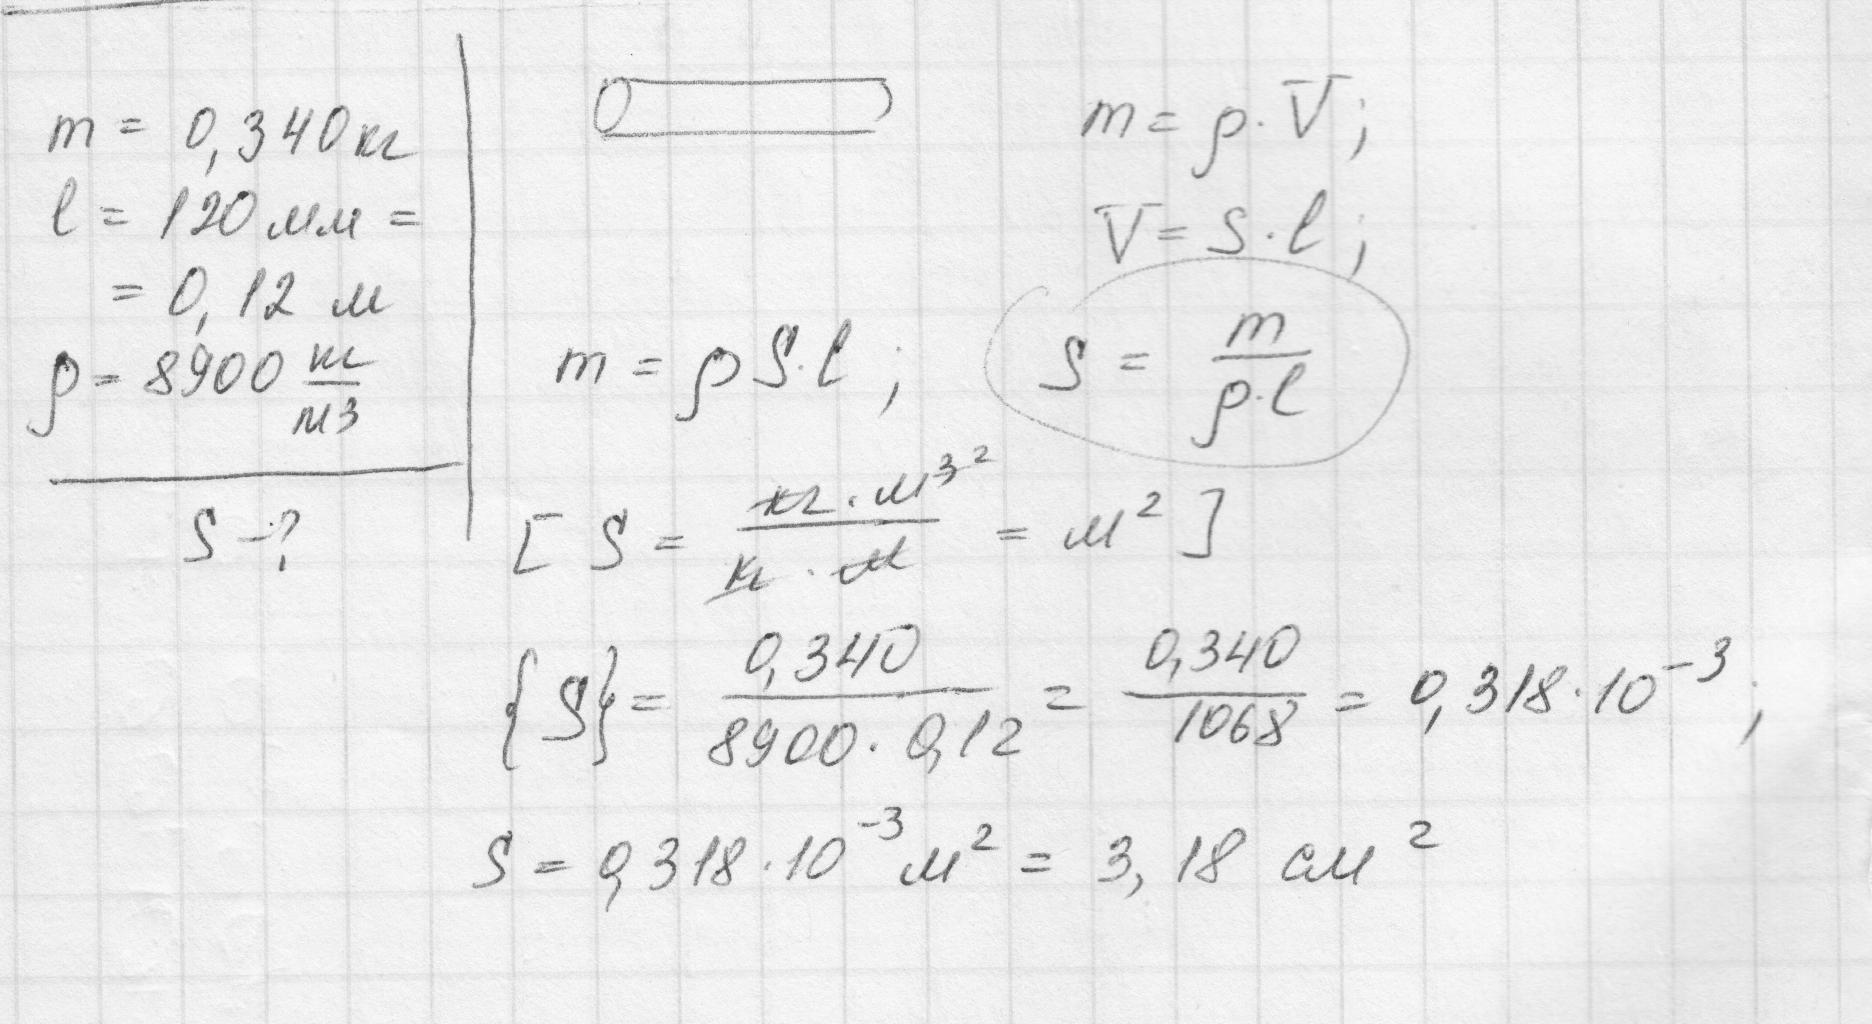 m = 0,340 кг
l = 120 мм =
= 0,12 м
ρ = 8900 кг/м3
S - ?
m = ρ · V;
V = S · l;
m = ρ S · l; S = m/(ρ · l)
[ S = (кг · м³ ²)/(кг · м) = м² ]
{S} = 0,340/(8900 · 0,12) = 0,340/1068 = 0,318 · 10⁻³;
S = 0,318 · 10⁻³ м² = 3,18 см²